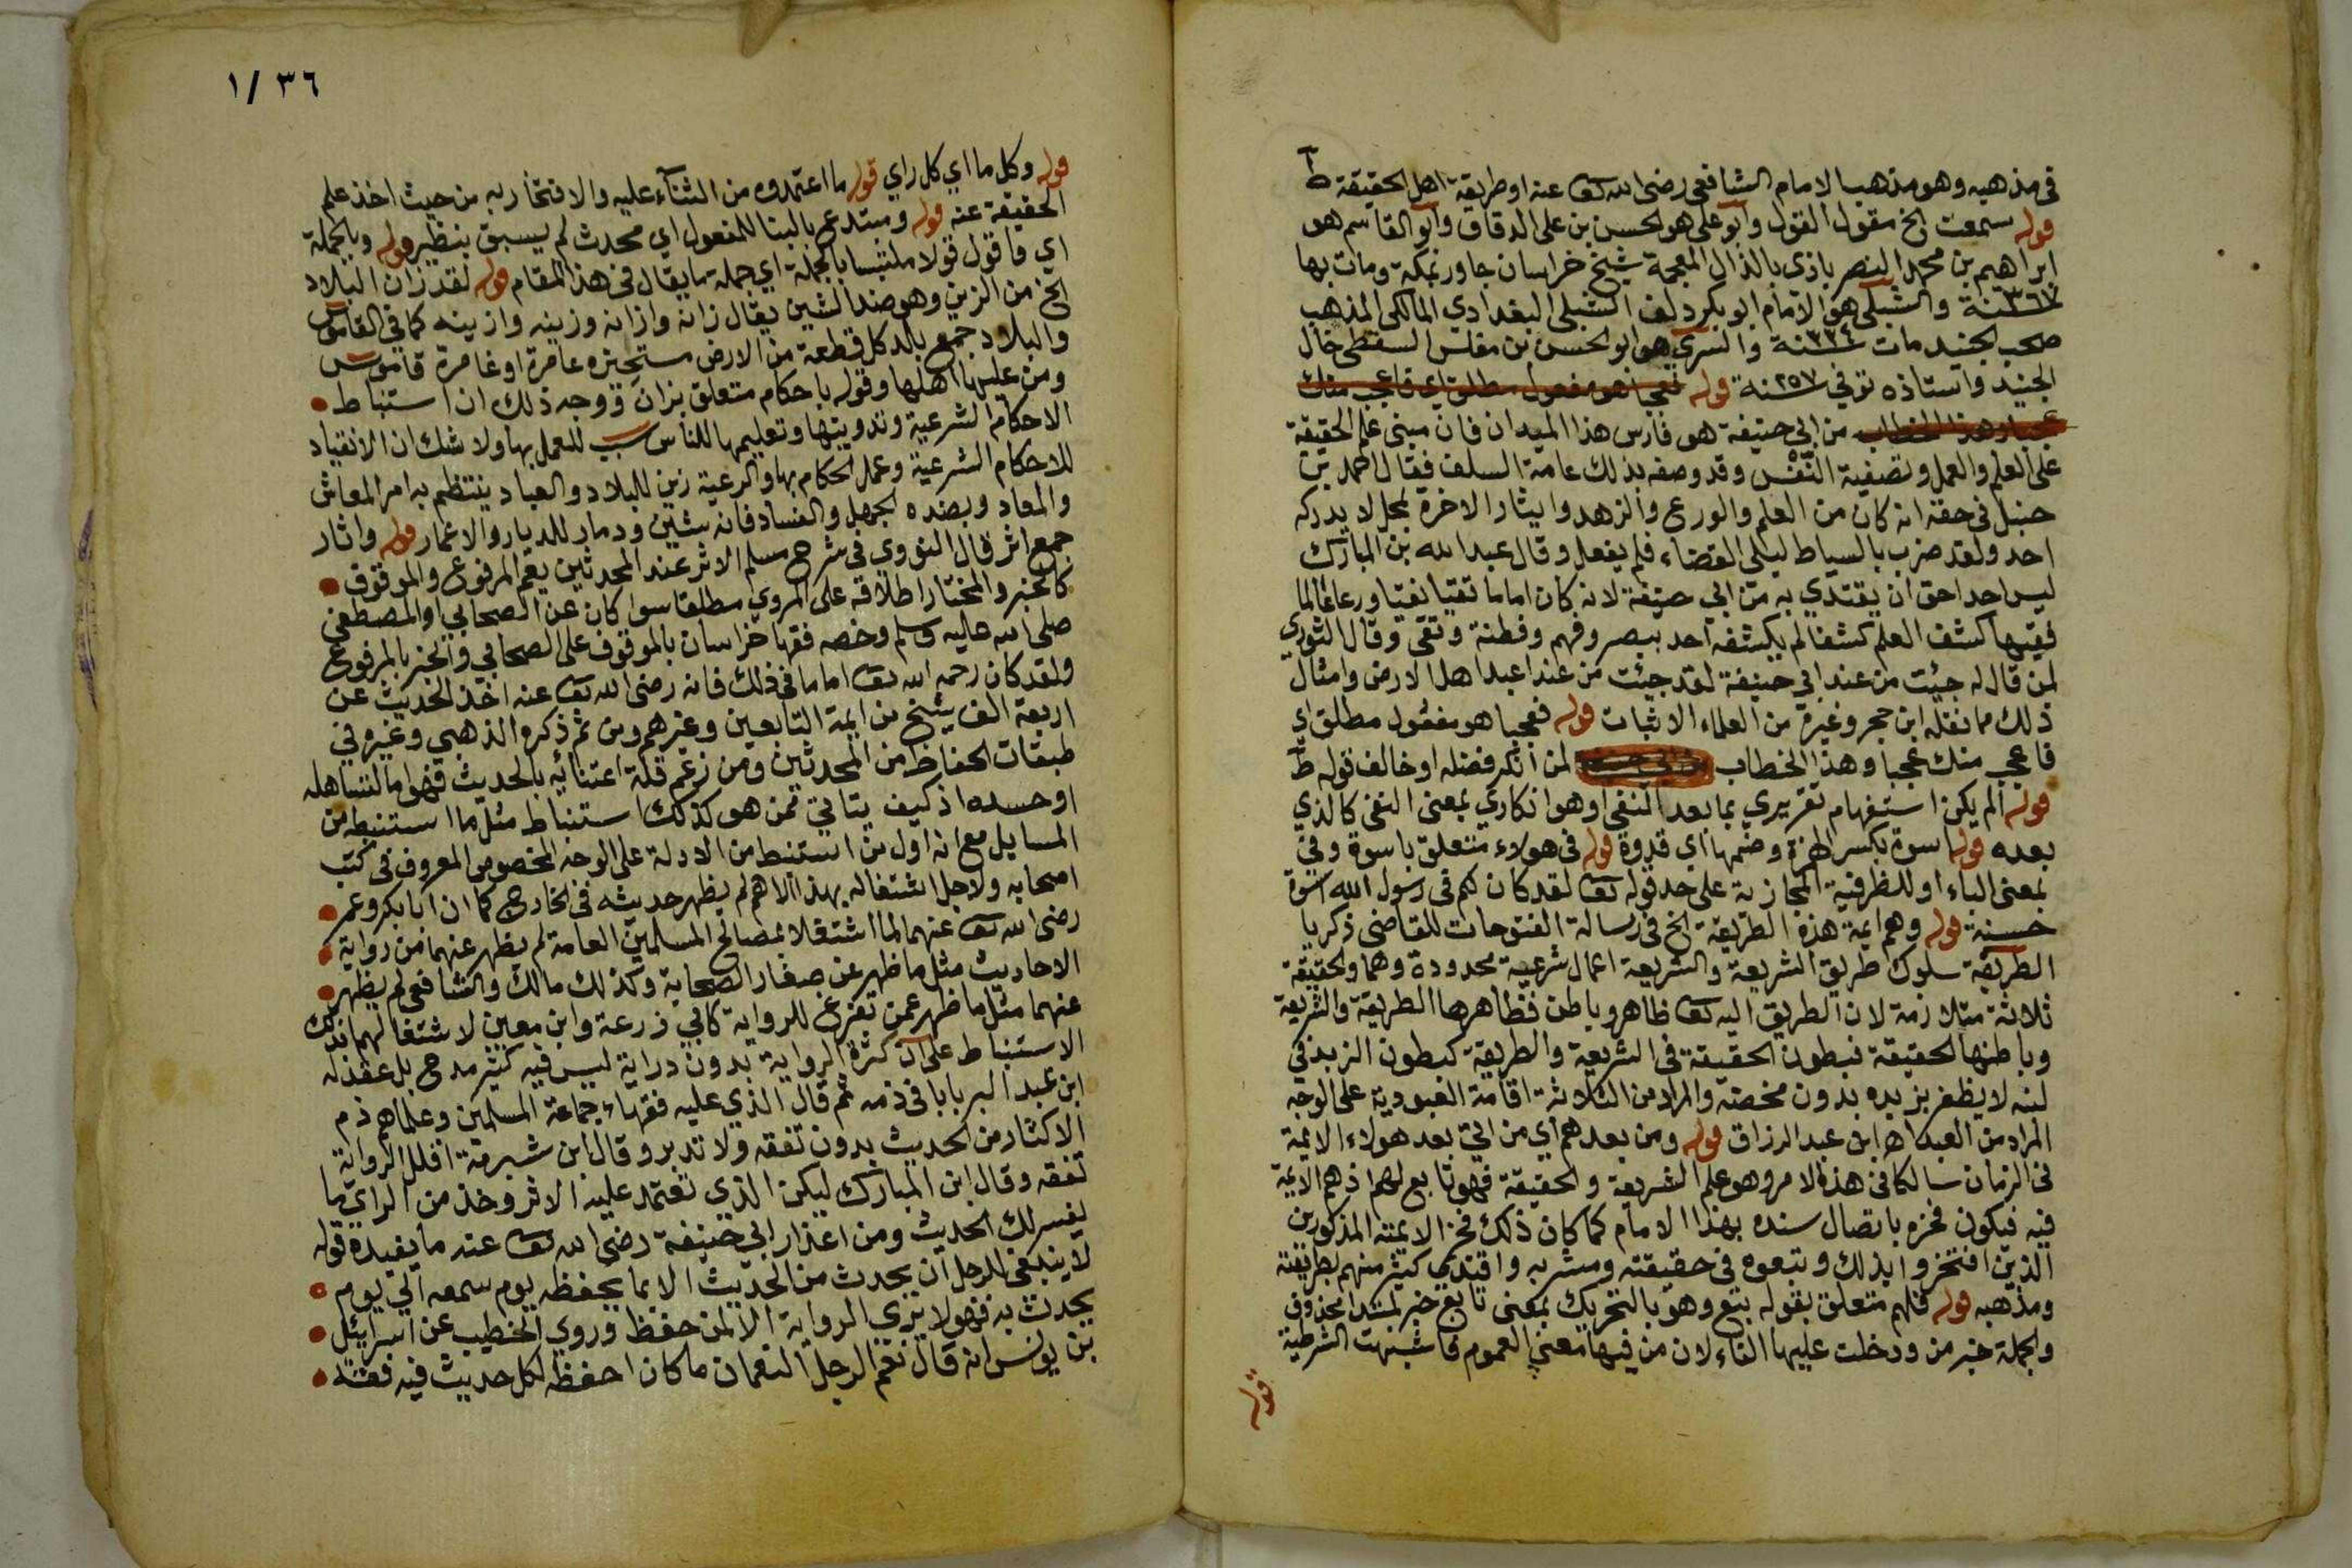 في مذهبه وهو مذهب الامام الشافعي رضى الله تع عنه او طريقة اهل الحقيقة ط
قوله سمعت الخ مقول القول وابو على هو الحسن بن على الدقاق وابو القاسم هو
ابراهيم بن محمد النصر باذي بالذال المعجمة شيخ خراسان جاور بمكة ومات بها
سنة ٣٦٧ والشبلي هو الامام ابو بكر دلف الشبلي البغدادي المالكي المذهب
صحب الجنيد مات سنة ٣٣٤ والسري هو ابو الحسن بن مغلس السقطي خال
الجنيد واستاذه توفي سنة ٢٥٧ قوله فعجبا هو مفعول مطلق اي فاعجب منك
عجبا وهذا الخطاب من ابي حنيفة هو فارس هذا الميدان فان مبنى علم الحقيقة
على العلم والعمل وتصفية النفس وقد وصفه بذلك عامة السلف فقال احمد بن
حنبل في حقه انه كان من العلم والورع والزهد وايثار الاخرة بمحل لا يدركه
احد ولقد ضرب بالسياط ليلي القضاء فلم يفعل وقال عبد الله بن المبارك
ليس احد احق ان يقتدي به من ابي حنيفة لانه كان اماما تقيا نقيا ورعا عالما
فقيها كشف العلم كشفا لم يكشفه احد ببصر وفهم وفطنة وتقى وقال الثوري
لمن قال له جئت من عند ابي حنيفة لقد جئت من عند اعبد اهل الارض وامثال
ذلك مما نقله ابن حجر وغيره من العلماء الاثبات قوله فعجبا هو مفعول مطلق اي
فاعجب منك عجبا وهذا الخطاب لمن انكر فضله او خالف قوله ط
قوله الم يكن استفهام تقريري بما بعد النفي او هو انكاري بمعنى النفي كالذي
بعده قوله اسوة بكسر الهمزة وضمها اي قدوة قوله في هولاء متعلق باسوة وفي
بمعنى الباء او للظرفية المجازية على حد قوله تع لقد كان لكم في رسول الله اسوة
حسنة قوله وهم ايمة هذه الطريقة الخ في رسالة الفتوحات للقاضي زكريا
الطريقة سلوك طريق الشريعة والشريعة اعمال شرعية محدودة وهما والحقيقة
ثلاثة متلازمة لان الطريق اليه تع ظاهر وباطن فظاهرها الطريقة والشريعة
وباطنها الحقيقة فبطون الحقيقة في الشريعة والطريقة كبطون الزبد في
لبنه لا يظفر بزبده بدون مخضه والمراد من الثلاثة اقامة العبودية على الوجه
المراد من العبد اه ابن عبد الرزاق قوله ومن بعدهم اي من اتي بعد هولاء الايمة
في الزمان سالكا في هذه الامر وهو علم الشريعة والحقيقة فهو تابع لهم اذ هم الايمة
فيه فيكون فخره باتصال سنده بهذا الامام كما كان ذلك فخر الايمة المذكورين
الذين افتخروا بذلك وتبعوه في حقيقته ومشربه واقتدي كثير منهم بطريقته
ومذهبه قوله فلهم متعلق بقوله تبع وهو بالتحريك بمعنى تابع خبر لمبتدا محذوف
والجملة خبر من ودخلت عليها الفاء لان من فيها معني العموم فاشبهت الشرطية
قوله
١/٣٦
قوله وكل ما اي كل راي قوله ما اعتمدوه من الثناء عليه والافتخار به من حيث اخذ علم
الحقيقة عنه قوله ومبتدع بالبنا للمفعول اي محدث لم يسبق بنظير قوله وبالجملة
اي فاقول قولا ملتبسا بالجملة اي جملة ما يقال في هذا المقام قوله لقد زان البلاد
الخ من الزين وهو ضد الشين يقال زانه وازانه وزينه وازينه كما في القاموس
والبلاد جمع بلد كل قطعة من الارض مستحيزه عامرة او غامرة قاموس
ومن عليها اهلها وقوله باحكام متعلق بزان ووجه ذلك ان استنباط
الاحكام الشرعية وتدوينها وتعليمها للناس سبب للعمل بها ولا شك ان الانقياد
للاحكام الشرعية وعمل الحكام بها والرعية زين للبلاد والعباد ينتظم به امر المعاش
والمعاد وبضده الجهل والفساد فانه شين ودمار للديار والاعمار قوله واثار
جمع اثر قال النووي في شرح مسلم الاثر عند المحدثين يعم المرفوع والموقوف
كالخبر والمختار اطلاقه على المروي مطلقا سوا كان عن الصحابي او المصطفى
صلى الله عليه وسلم وخصه فقها خراسان بالموقوف على الصحابي والخبر بالمرفوع
ولقد كان رحمه الله تع اماما في ذلك فانه رضى الله تع عنه اخذ الحديث عن
اربعة الف شيخ من ايمة التابعين وغيرهم ومن ثم ذكره الذهبي وغيره في
طبقات الحفاظ من المحدثين ومن زعم قلة اعتنائه بالحديث فهو اما لتساهله
او حسده اذ كيف يتاتي ممن هو كذلك استنباط مثل ما استنبطه من
المسايل مع انه اول من استنبط من الادلة على الوجه المخصوص المعروف في كتب
اصحابه ولاجل اشتغاله بهذا الاهم لم يظهر حديثه في الخارج كما ان ابا بكر وعمر
رضى الله تع عنهما لما اشتغلا بمصالح المسلمين العامة لم يظهر عنهما من رواية
الاحاديث مثل ما ظهر عن صغار الصحابة وكذلك مالك والشافعي لم يظهر
عنهما مثل ما ظهر عمن تفرغ للرواية كابي زرعة وابن معين لاشتغالهما بذلك
الاستنباط على ان كثرة الرواية بدون دراية ليس فيه كثير مدح بل عقد له
ابن عبد البر بابا في ذمه ثم قال الذي عليه فقهاء جماعة المسلمين وعلماهم ذم
الاكثار من الحديث بدون تفقه ولا تدبر وقال ابن شبرمة اقلل الرواية
تفقه وقال ابن المبارك ليكن الذي تعتمد عليه الاثر وخذ من الراي ما
يفسر لك الحديث ومن اعذار ابي حنيفة رضى الله تع عنه ما يفيده قوله
لا ينبغي للرجل ان يحدث من الحديث الا بما يحفظه يوم سمعه الي يوم
يحدث به فهو لا يري الرواية الا لمن حفظ وروي الخطيب عن اسرائيل
بن يونس انه قال نعم الرجل النعمان ما كان احفظه لكل حديث فيه فقه